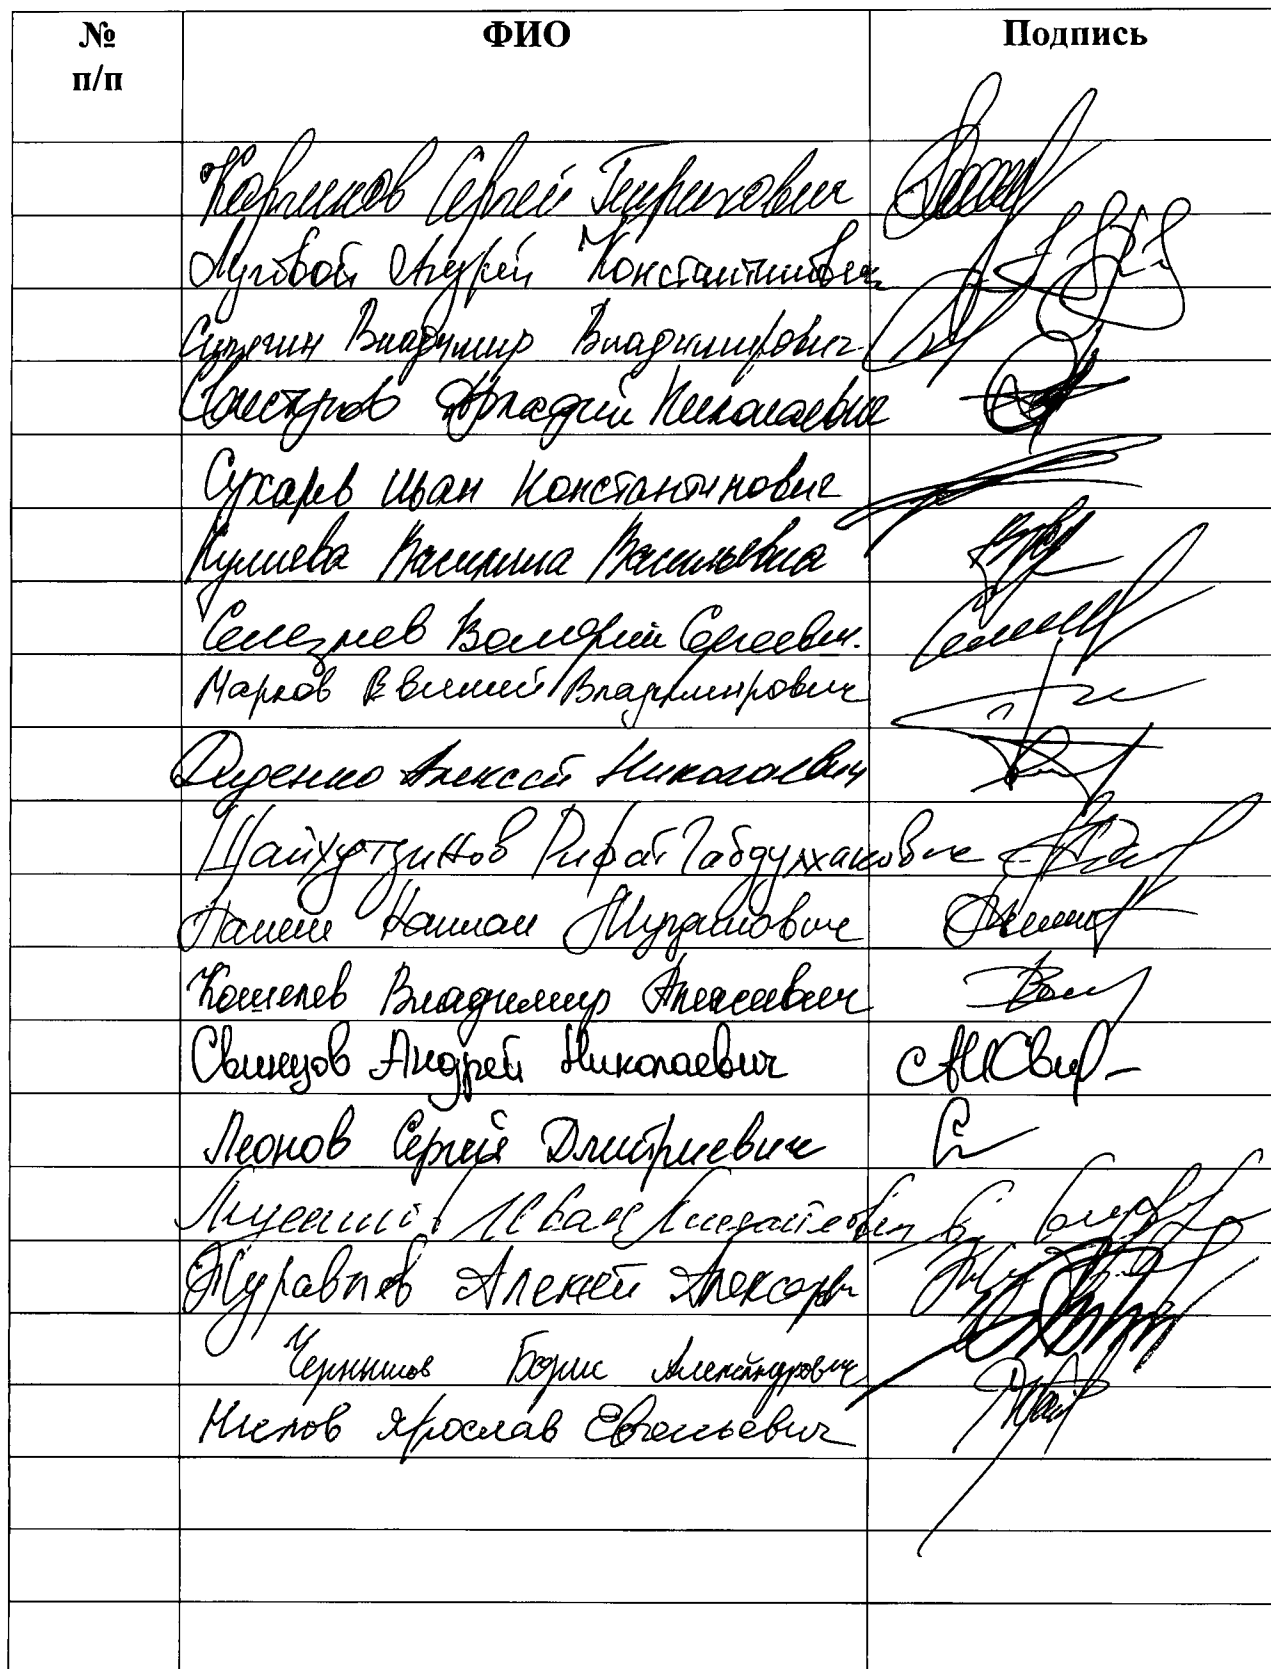 № п/п
ФИО
Подпись
Каргинов Сергей Генрихович
Луговой Андрей Константинович
Сипягин Владимир Владимирович
Свистунов Аркадий Николаевич
Сухарев Иван Константинович
Кулиева Василина Васильевна
Селезнев Валерий Сергеевич.
Марков Евгений Владимирович
Диденко Алексей Николаевич
Шайхутдинов Рифат Габдулхакович
Панеш Каплан Мугдинович
Кошелев Владимир Алексеевич
Свинцов Андрей Николаевич
Леонов Сергей Дмитриевич
Журавлев Алексей Александр
Чернышов Борис Александрович
Нилов Ярослав Евгеньевич